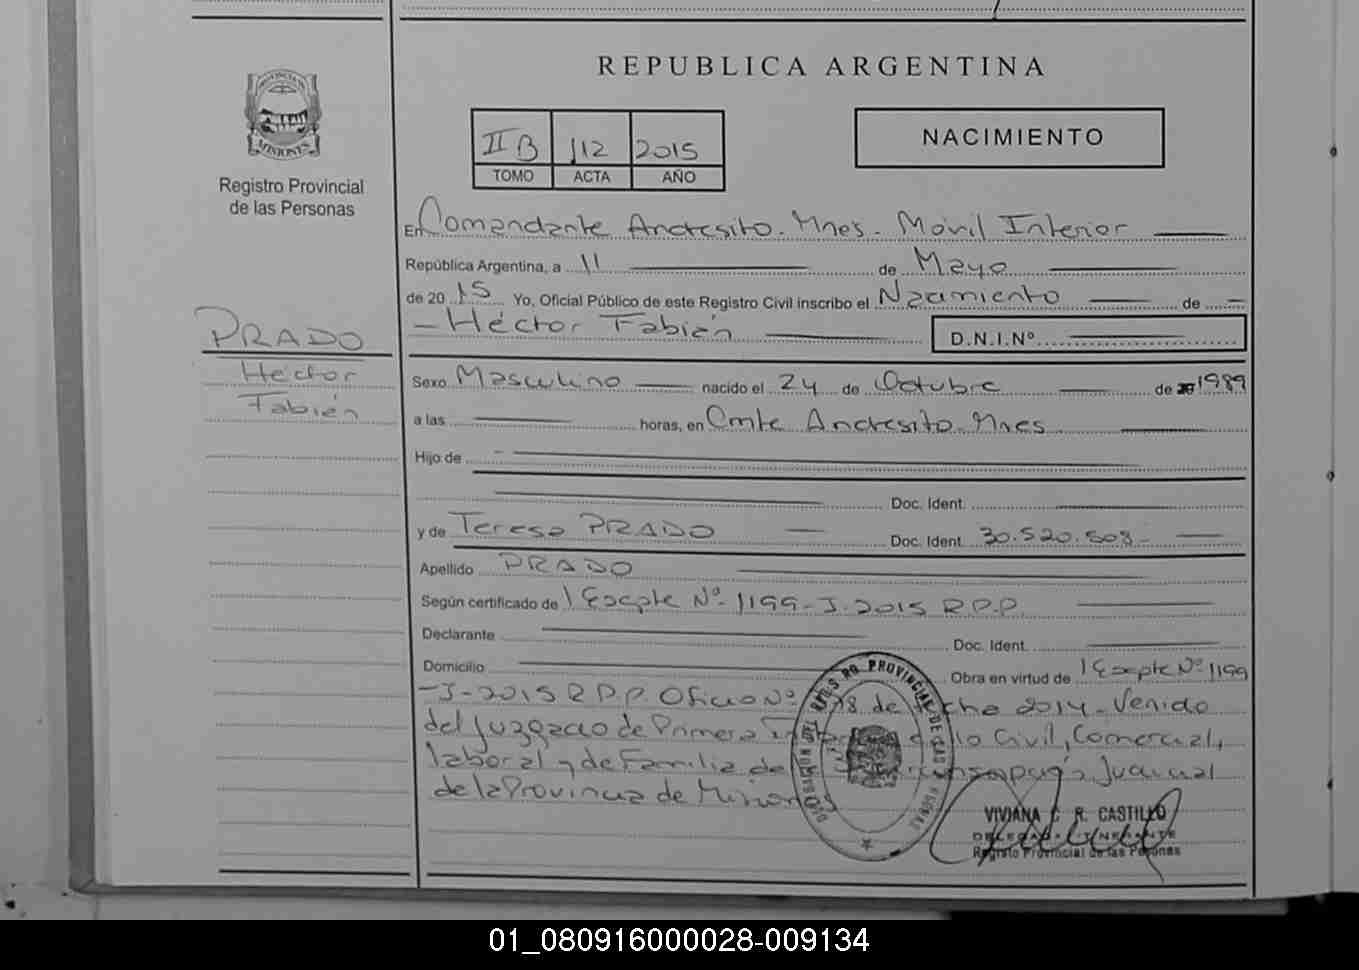 REPUBLICA ARGENTINA
PROVINCIA DE
MISIONES
Registro Provincial
de las Personas
II B 112 2015
TOMO ACTA AÑO
NACIMIENTO
En Comandante Andresito. Mnes. Móvil Interior
República Argentina, a 11 de Mayo
de 20 15 Yo, Oficial Público de este Registro Civil inscribo el Nacimiento de
Héctor Fabián D.N.I.Nº
PRADO
Héctor
Fabián
Sexo Masculino nacido el 24 de Octubre de 1989
a las horas, en Cmte Andresito. Mnes
Hijo de
Doc. Ident.
y de Teresa PRADO Doc. Ident. 30.520.508
Apellido PRADO
Según certificado de Expte Nº 1199-J-2015 R.P.P.
Declarante Doc. Ident.
Domicilio Obra en virtud de Expte Nº 1199
-J-2015 R.P.P. Oficio Nº de 2014. Venido
del Juzgado de Primera en lo Civil, Comercial,
laboral y de Familia de Judicial
de la Provincia de Misiones
PROVINCIAL DE LAS
VIVIANA C. R. CASTILLO
DELEGADA ITINERANTE
Registro Provincial de las Personas
01_080916000028-009134